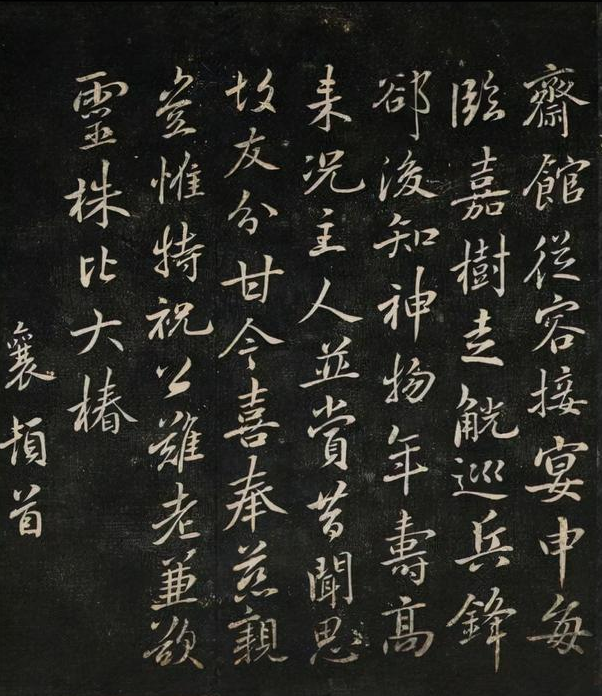 齋館從容接宴申每
臨嘉樹走觥巡兵鋒
卻後知神物年壽高
來況主人並賞昔聞思
故友分甘今喜奉慈親
豈惟特祝公難老兼欲
靈株比大椿
襄頓首